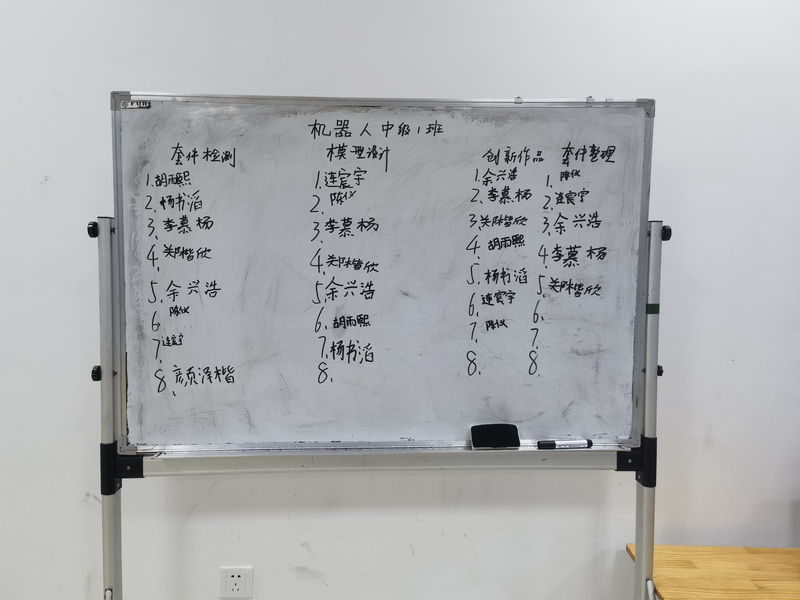 机器人中级1班
套件检测
1.胡雨熙
2.杨书滔
3.李慕杨
4.郑楷欣
5.余兴浩
6.陈仪
7.连宸宇
8.颜泽楷
模型设计
1.连宸宇
2.陈仪
3.李慕杨
4.郑楷欣
5.余兴浩
6.胡雨熙
7.杨书滔
8.
创新作品
1.余兴浩
2.李慕杨
3.郑楷欣
4.胡雨熙
5.杨书滔
6.连宸宇
7.陈仪
8.
套件整理
1.陈仪
2.连宸宇
3.余兴浩
4.李慕杨
5.郑楷欣
6.
7.
8.